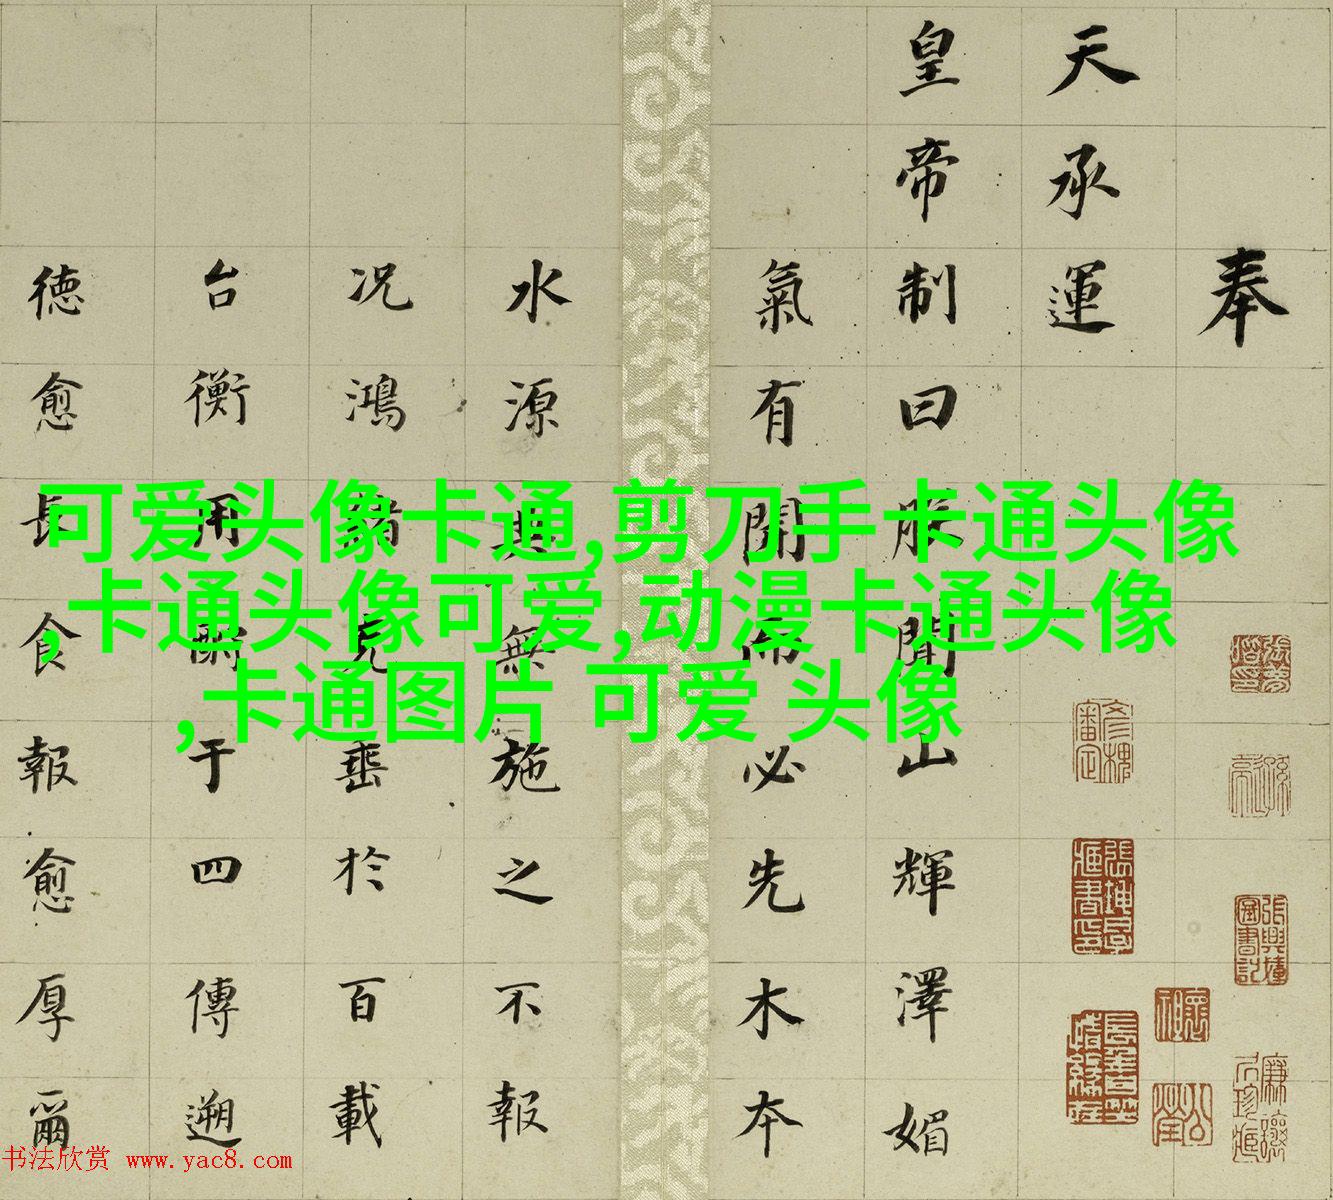 奉
天承運
皇帝制曰朕聞山輝澤媚
氣有開而必先木本
水源無施之不報
况鴻緒克垂於百載
台衡用酬于四傳遡
德愈長食報愈厚爾
可爱头像卡通,剪刀手卡通头像
,卡通头像可爱,动漫卡通头像
,卡通图片 可爱 头像
书法欣赏 www.yac8.com